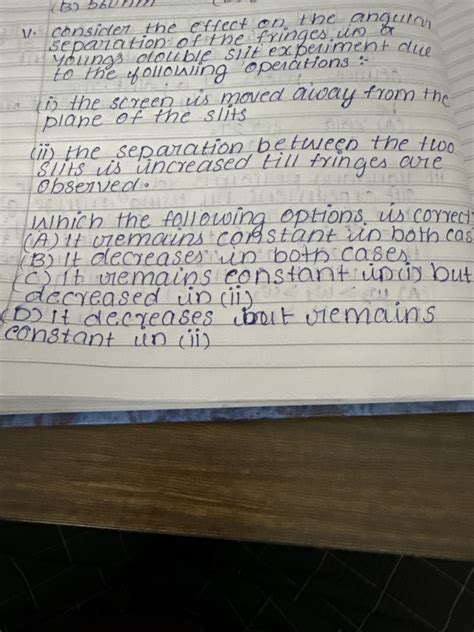 V. consider the effect on the angular
separation of the fringes in a
Youngs double slit experiment due
to the following operations :-
(i) the screen is moved away from the
plane of the slits
(ii) the separation between the two
slits is increased till fringes are
observed.
which the following options is correct
(A) It remains constant in both cas
(B) It decreases in both cases
(C) It remains constant in (i) but
decreased in (ii)
(D) It decreases but remains
constant in (ii)